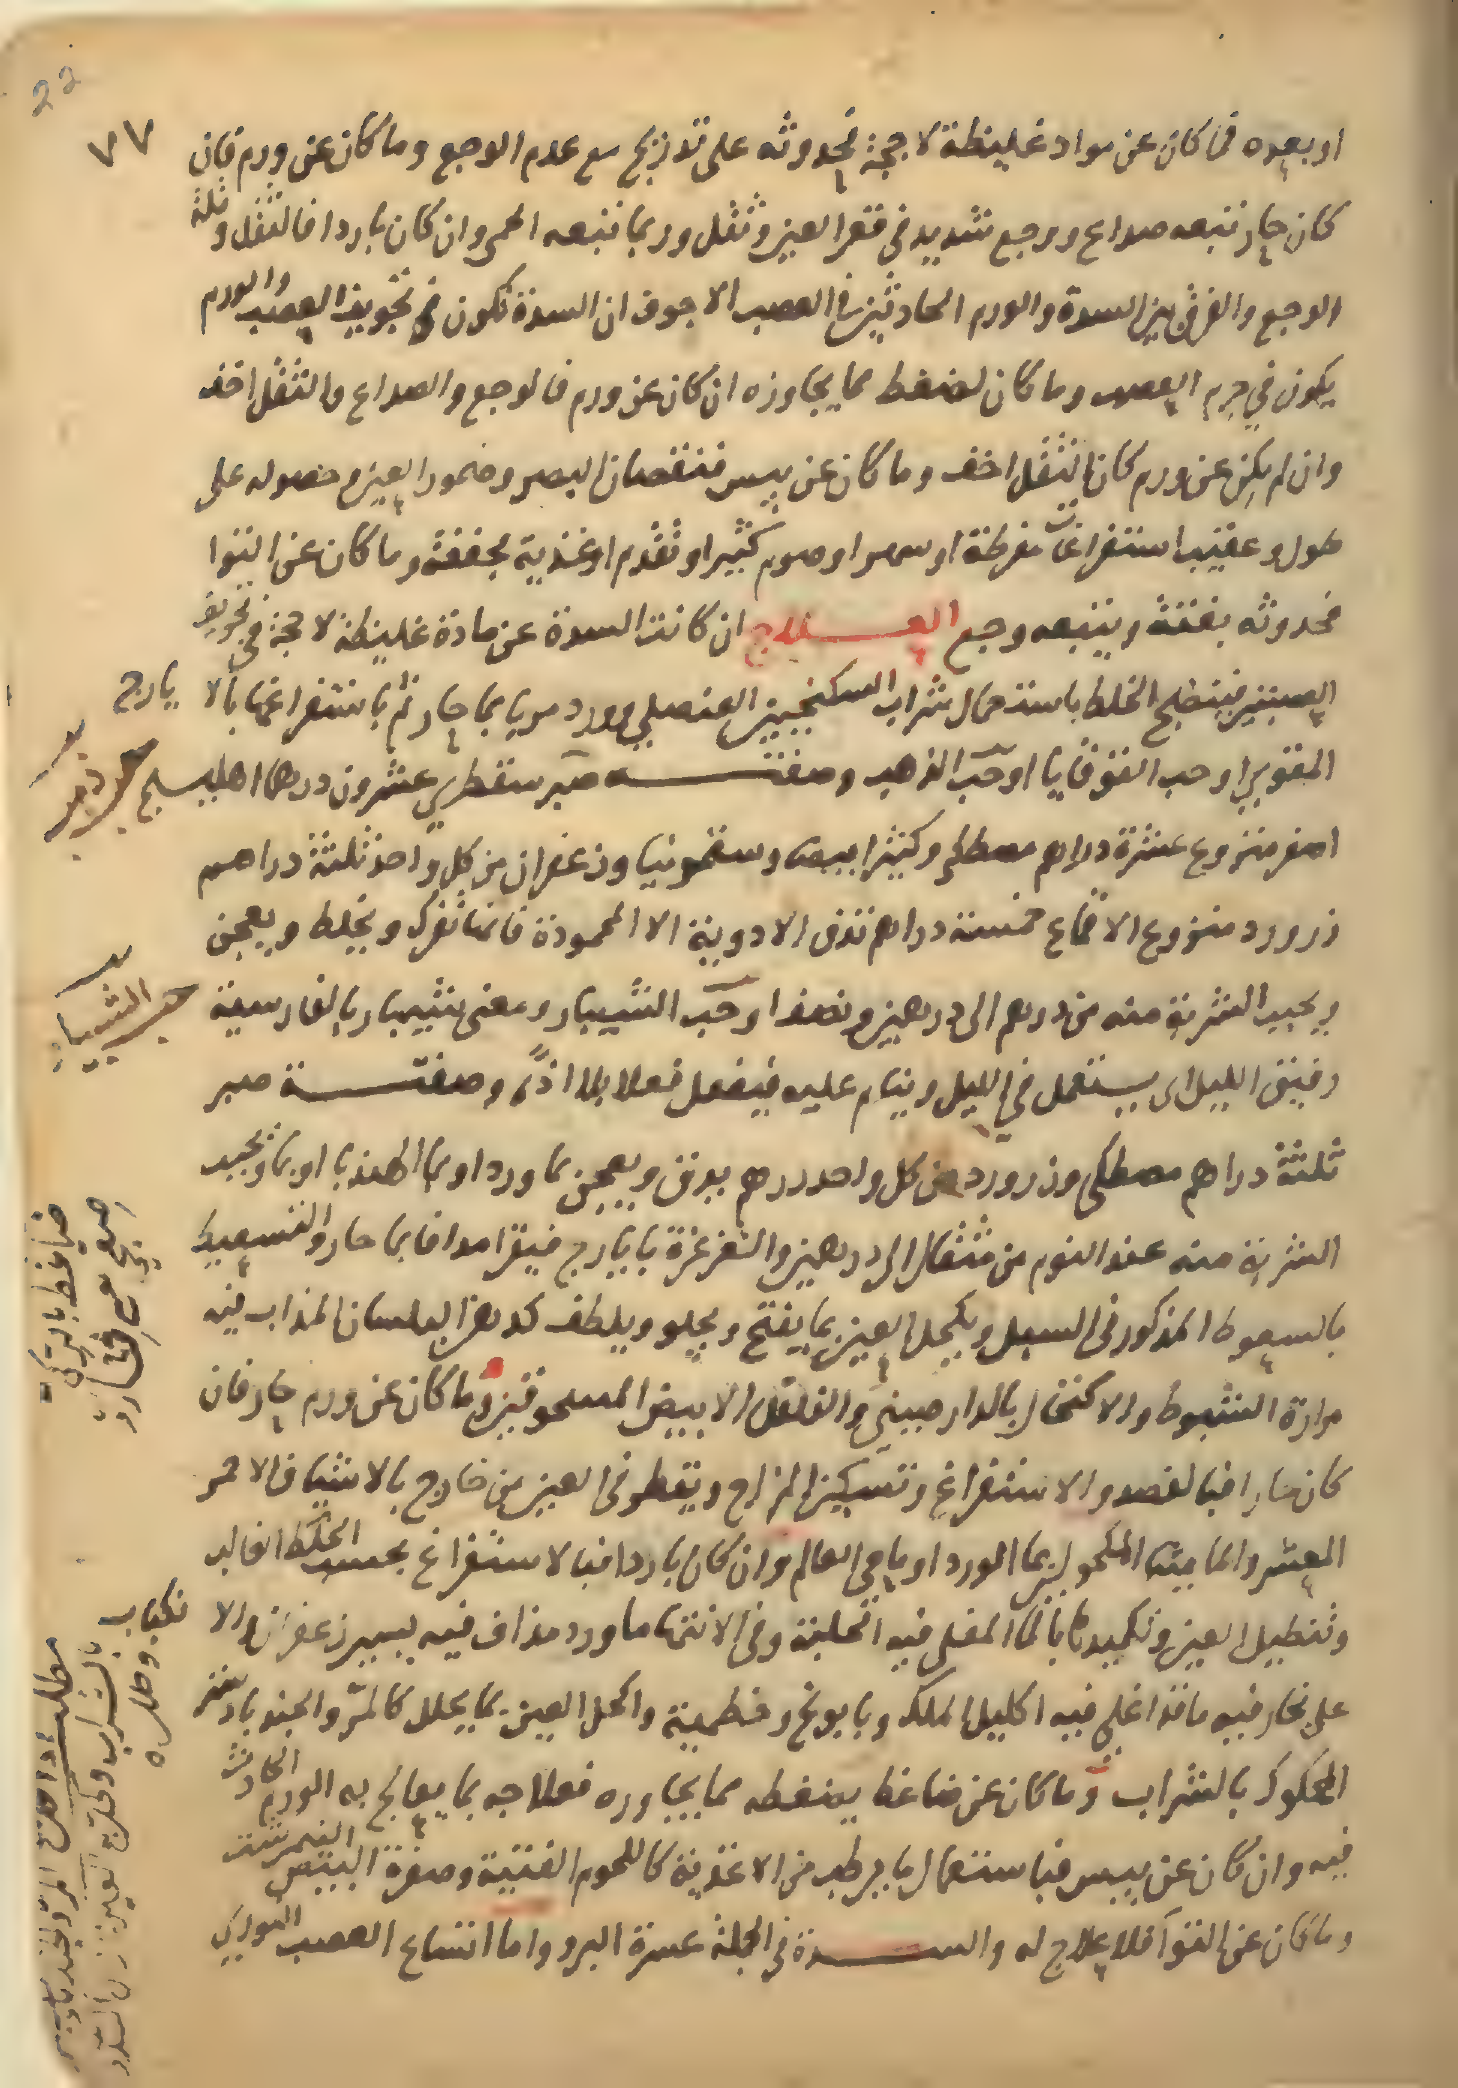 22
٧٧
او بعده فما كان عن مواد غليظة لاحجة فحدوثه على تدريج مع عدم الوجع وما كان عن ورم فان
كان حار تبعه صداع ووجع شديد في قعر العين وثقل وربما تبعه الحمى وان كان باردا فالثقل وقلة
الوجع والفرق بين السدة والورم الحادثين في العصب الاجوف ان السدة تكون في تجويف العصب والورم
يكون في جرم العصب وما كان لضغط مما يجاوره ان كان عن ورم فالوجع والصداع والثقل اخف
وان لم يكن عن ورم كان الثقل اخف وما كان عن يبس فنقصان البصر وضمور العين وحصوله على
طول وعقيب استفراغات مفرطة او سهر او صوم كثير او تقدم اغذية مجففة وما كان عن التوا
فحدوثه بغتة ويتبعه وجع العلاج ان كانت السدة عن مادة غليظة لاحجة في تجويف
العصبتين فينضج الخلط باستعمال شراب السكنجبين العنصلي وورد مربا بما حار ثم باستفراغها بالا يارج
المقوي او حب القوقايا او حب الذهب وصفته صبر سقطري عشرون درهما اهليلج
اصفر منزوع عشرة دراهم مصطكي وكثيرا بيضا وسقمونيا وزعفران من كل واحد ثلثة دراهم
زر ورد منزوع الاقماع خمسة دراهم تدق الادوية الا المحمودة فانها تفرك ويخلط ويعجن
ويحبب الشربة منه من درهم الى درهمين ونصف او حب الشبيار ومعنى شبيار بالفارسية
رفيق الليل اي يستعمل في الليل وينام عليه فيفعل فعلا بلا اذى وصفته صبر
ثلثة دراهم مصطكى وزر ورد من كل واحد درهم يدق ويعجن بماورد او بما الهندبا او بما ويحبب
الشربة منه عند النوم من مثقال الى درهمين والتغرغرة بايارج فيقرا مدافا بما حار والتسعيط
بالسعوط المذكور في السبل ويكحل العين بما يفتح ويجلو ويلطف كدهن البلسان المذاب فيه
مرارة الشبوط والاكتحال بالدارصيني والفلفل الابيض المسحوقين وما كان عن ورم حار فان
كان حارا فبالفصد والاستفراغ وتسكين المزاج ويقطر في العين من خارج بالاشياف الاحمر
المعشر والماميثا المحلول بما الورد او بما حي العالم وان كان باردا فبالاستفراغ بحسب الخلط الغالب
وتنطيل العين وتكميدها بالما المغلي فيه الحلبة وفي الانتها ما ورد مذاف فيه يسير زعفران والا
على بخار فيه ما قد اغلي فيه اكليل الملك وبابونج وخطمية واكحل العين بما يحلل كالمر والجندبادستر
المحكوك بالشراب وما كان عن ضاغط يضغطه مما يجاوره فعلاجه بما يعالج به الورم الحادث
فيه وان كان عن يبس فباستعمال ما يرطب من الاغذية كاللحوم الفتية وصفرة البيض النمرشت
وما كان عن التوا فلا علاج له والسدة في الجملة عسرة البرو واما اتساع العصب النوري
حب ذهب
حب الشبيار
ضاغط بالتركي
نكباب